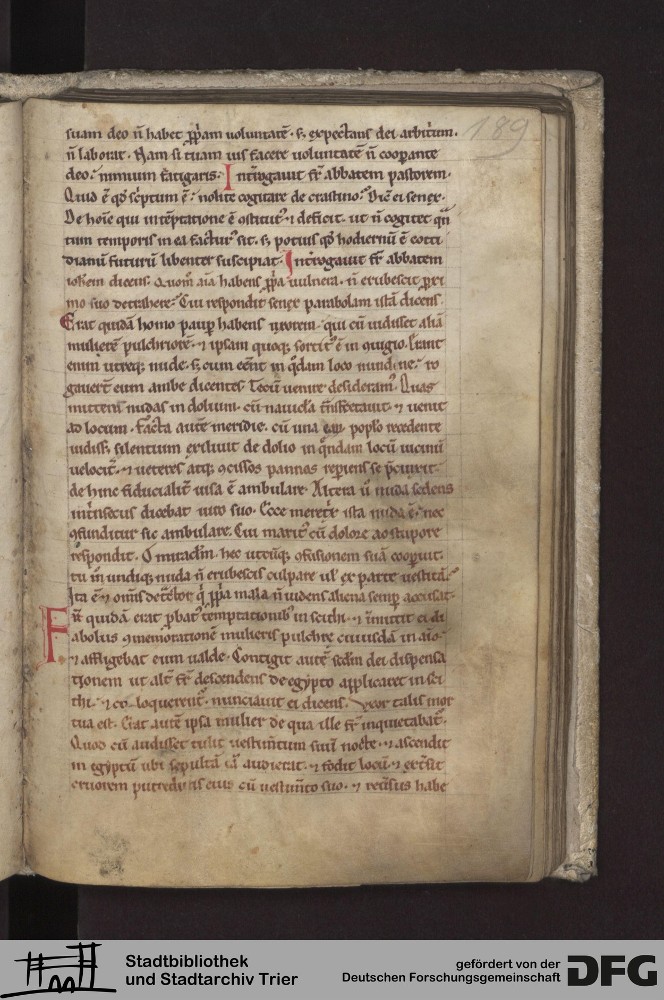 189
suam deo n̄ habet ꝓp̄am uoluntatē · s; expectans dei arbitriū·
n̄ laborat · Nam si tuam uis facere uoluntatē n̄ cooꝑante
deo; nimium fatigaris· Int̄rogauit fr̄ abbatem pastorem·
Quid ē qđ sc̄ptum ē; nolite cogitare de crastino; Dic̄ ei senex·
De hoīe qui in tēptatione ē · ⁊ deficit· ut n̄ cogitet
tum temporis in ea · s; potius qđ hodiernū ē cotti
dianū futurū libenter suscipiat· Int̄rogauit fr̄ abbatem
dicens· Quom̄ aīa habens ꝓp̄a uulnera· n̄ erubescit ꝓxi
mo suo detrahere; Cui respondit senex parabolam istā dicens·
Erat quidā homo paup̄ habens uxorem· qui cū uidisset aliā
mulierē pulchriorē· ⁊ ipsam quoq; sortit᷒ ē in ꝯiugio· Erant
enim utreq; nude· s; cum eēnt in q̄dam loco nundine; ro
gauer̄t eum ambe dicentes· Tecū uenire desideram᷒· Quas
mittens nudas in dolium· cū nauicla t̄nsfretauit· ⁊ uenit
ad locum· Facta autē meridie· cū una poplō recedente
uidiss; silentium exsiliuit de dolio in q̄ndam locū uicinū
uelocit̄· ⁊ ueteres atq; ꝯcissos pannos reperiens se p̄cinxit·
de hinc fiducialit̄ uisa ē ambulare· Altera ū nuda sedens
int̄nsecus dicebat uiro suo· Ecce meretrix ista nuda ē· nec
ꝯfunditur sic ambulare· Cui marit᷒ cū dolore ac stupore
respondit· O mirac̄lm· hec utcūq; ꝯfusionem suā cooꝑuit·
tu īn undiq; nuda n̄ erubescis culpare uel ex parte uestitā;
Ita ē ⁊ om̄is detr̄ctor q̄ ꝓp̄a mala n̄ uidens aliena semꝑ accusat·
Fr̄ quidā erat ꝓbat᷒ temptationib᷒ in scithi· ⁊ īmittit ei di
abolus ꝯmemorationē mulieris pulchre cuiusdā in aīo·
⁊ affligebat eum ualde· Contigit autē sc̄dm dei dispensa
tionem ut alt̄ fr̄ descendens de egypto applicaret in sci
thi· ⁊ colloquerent᷒· nunciauit ei dicens· Uxor talis mor
tua est· Erat autē ipsa mulier de qua ille fr̄ inquietabat᷒·
Quod cū audisset tulit uestim̄tum suū nocte· ⁊ ascendit
in egyptū ubi sepultā eā audierat· ⁊ fodit locū· ⁊ ext̄sit
cruorem putredinis eius cū uestim̄to suo· ⁊ reu̅sus habe
Stadtbibliothek
und Stadtarchiv Trier
gefördert von der
Deutschen Forschungsgemeinschaft
DFG